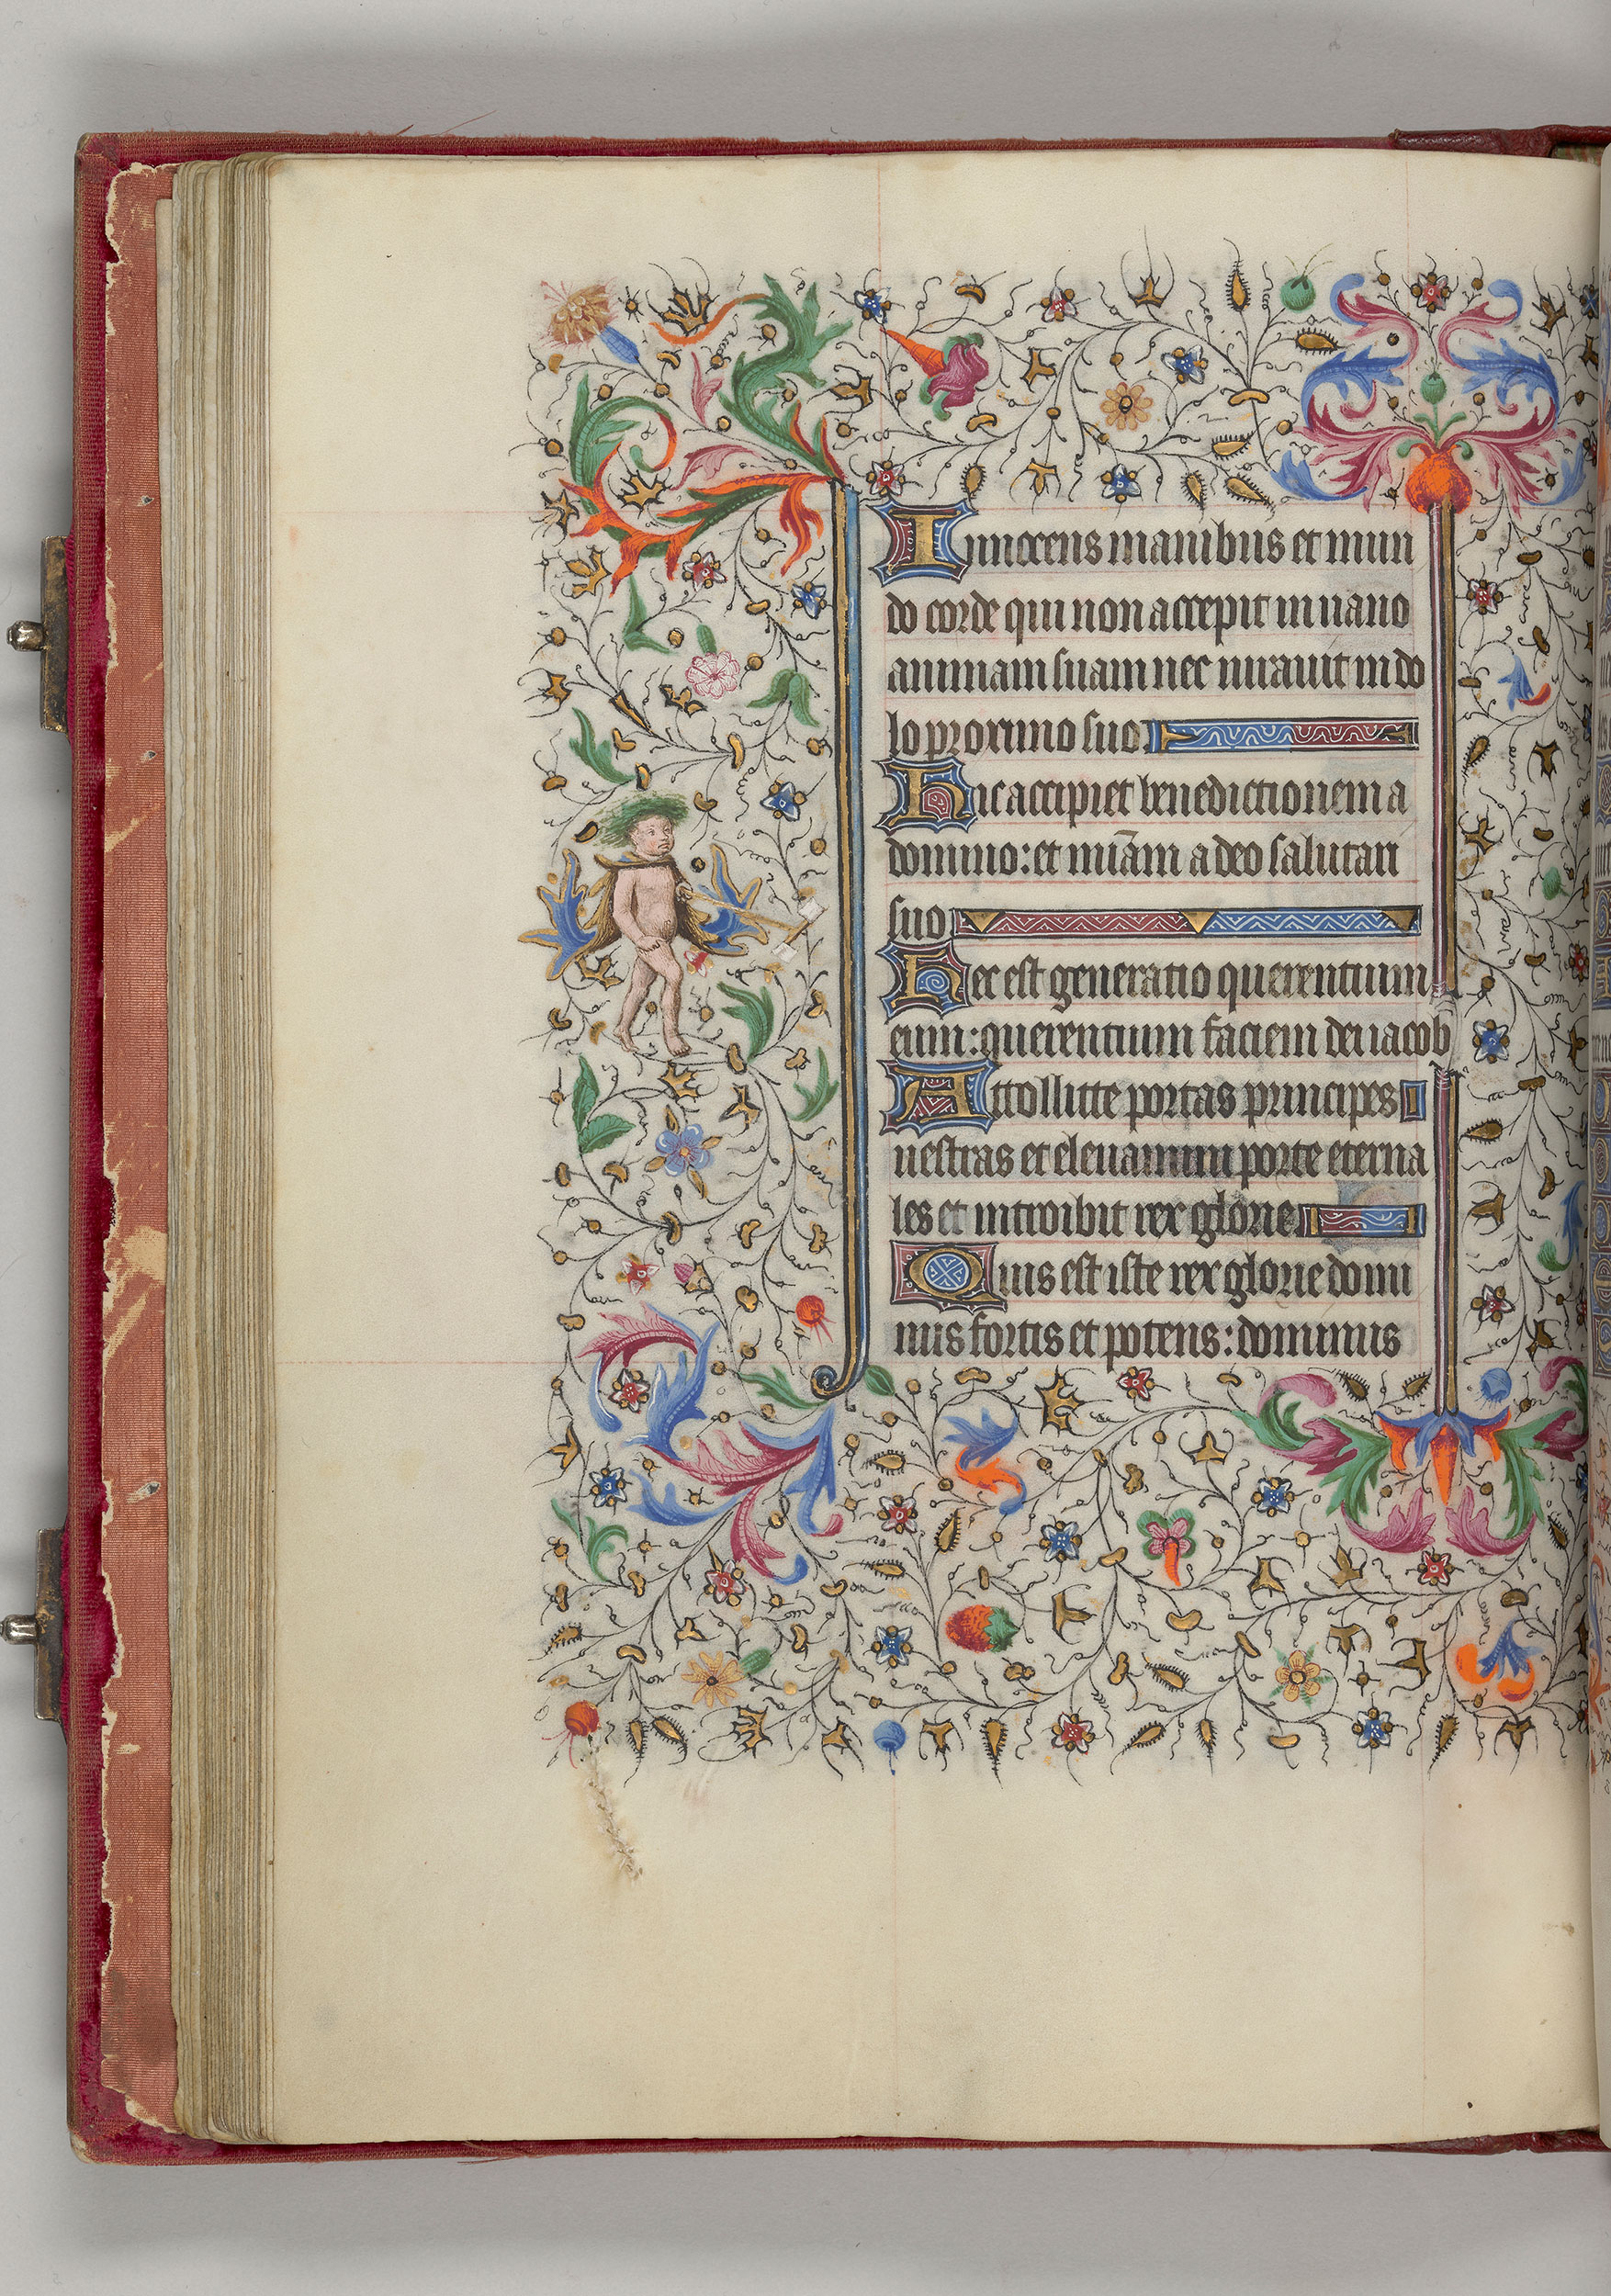 Innocens manibus et mun
do corde qui non accepit in uano
animam suam nec iurauit in do
lo proximo suo
Hic accipiet benedictionem a
domino: et mīam a deo salutari
suo
Hec est generatio querentium
eum: querentium faciem dei iacob
Attollitte portas principes
uestras et eleuamini porte eterna
les et introibit rex glorie
Quis est iste rex glorie domi
nus fortis et potens: dominus